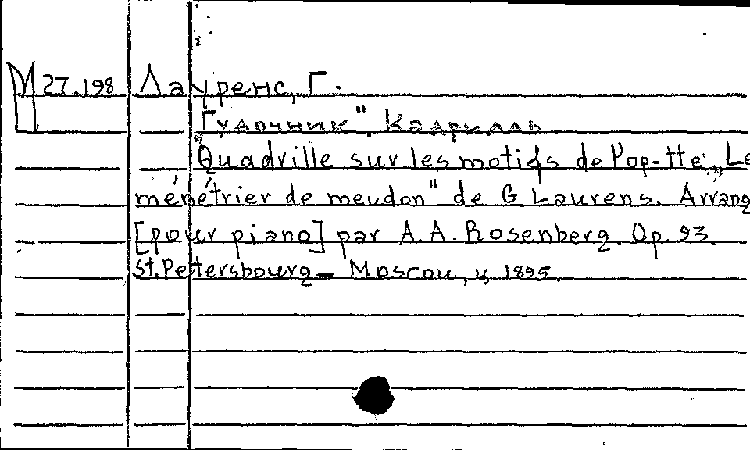 М 27.198 Лауренс, Г.
"Гудочник". Кадриль
Quadrille sur les motifs de l'op-tte: „Le
ménétrier de meudon" de G. Laurens. Arrang
[pour piano] par A. A. Rosenberg. Op. 93.
St. Petersbourg – Moscou, 1895.